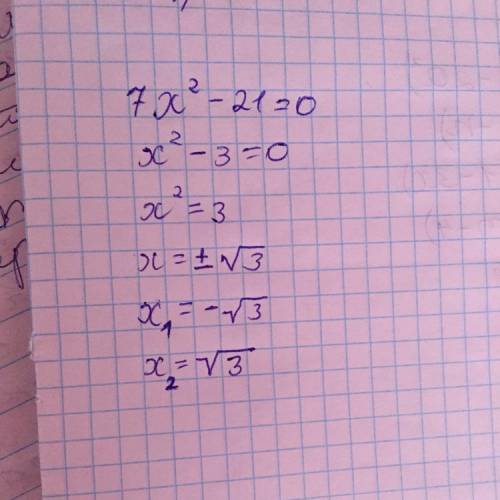 7x² - 21 = 0
x² - 3 = 0
x² = 3
x = ± √3
x₁ = -√3
x₂ = √3